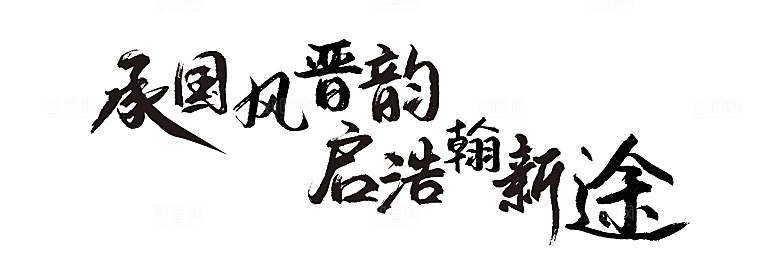 承国风晋韵
启浩瀚新途